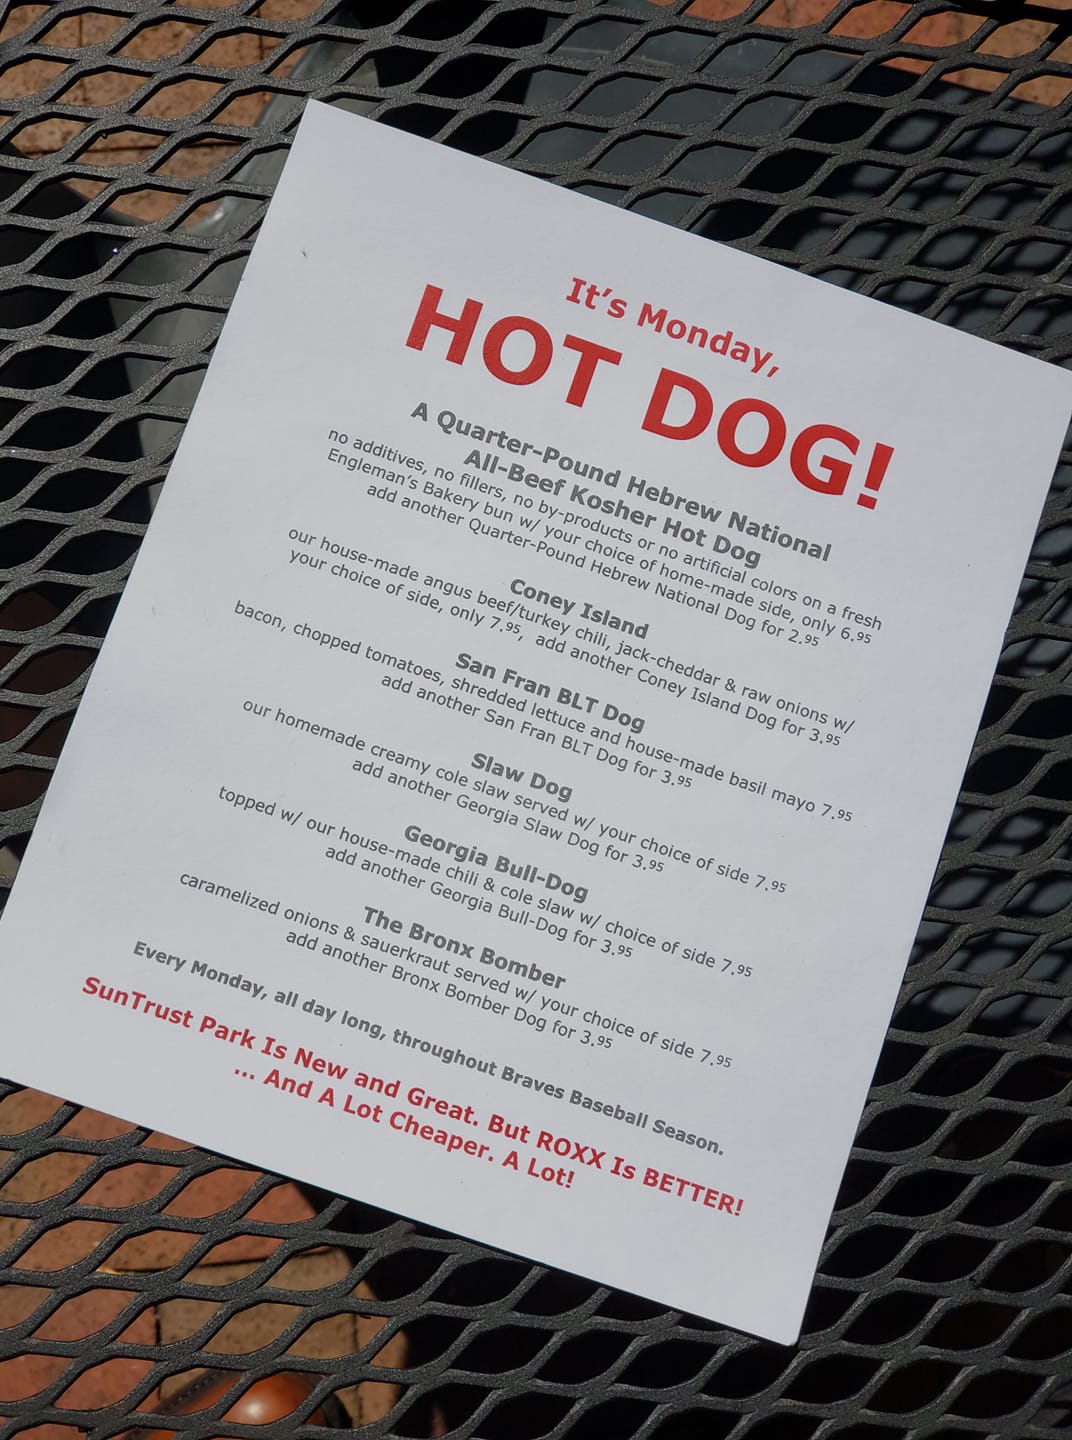 It's Monday,
HOT DOG!
A Quarter-Pound Hebrew National
All-Beef Kosher Hot Dog
no additives, no fillers, no by-products or no artificial colors on a fresh
Engleman's Bakery bun w/ your choice of home-made side, only 6.95
add another Quarter-Pound Hebrew National Dog for 2.95
Coney Island
our house-made angus beef/turkey chili, jack-cheddar & raw onions w/
your choice of side, only 7.95, add another Coney Island Dog for 3.95
San Fran BLT Dog
bacon, chopped tomatoes, shredded lettuce and house-made basil mayo 7.95
add another San Fran BLT Dog for 3.95
Slaw Dog
our homemade creamy cole slaw served w/ your choice of side 7.95
add another Georgia Slaw Dog for 3.95
Georgia Bull-Dog
topped w/ our house-made chili & cole slaw w/ choice of side 7.95
add another Georgia Bull-Dog for 3.95
The Bronx Bomber
caramelized onions & sauerkraut served w/ your choice of side 7.95
add another Bronx Bomber Dog for 3.95
Every Monday, all day long, throughout Braves Baseball Season.
SunTrust Park Is New and Great. But ROXX Is BETTER!
... And A Lot Cheaper. A Lot!